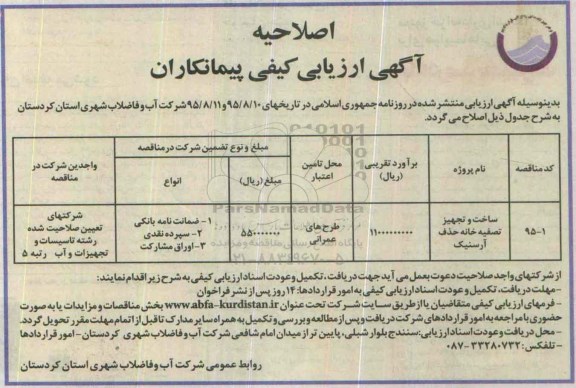 اصلاحیه
آگهی ارزیابی کیفی پیمانکاران
بدینوسیله آگهی ارزیابی منتشر شده در روزنامه جمهوری اسلامی در تاریخهای ۹۵/۸/۱۰ و ۹۵/۸/۱۱ شرکت آب و فاضلاب شهری استان کردستان
به شرح جدول ذیل اصلاح می گردد.
کد مناقصه
نام پروژه
برآورد تقریبی (ریال)
محل تامین اعتبار
مبلغ و نوع تضمین شرکت در مناقصه
مبلغ (ریال)
انواع
واجدین شرکت در مناقصه
۹۵-۱
ساخت و تجهیز
تصفیه خانه حذف
آرسنیک
طرح های
عمرانی
۱- ضمانت نامه بانکی
۲- سپرده نقدی
۳- اوراق مشارکت
شرکتهای
تعیین صلاحیت شده
رشته تاسیسات و
تجهیزات و آب رتبه ۵
ParsNamadData
از شرکتهای واجد صلاحیت دعوت بعمل می آید جهت دریافت، تکمیل و عودت اسناد ارزیابی کیفی به شرح زیر اقدام نمایند:
- مهلت دریافت، تکمیل و عودت اسناد ارزیابی کیفی به امور قراردادها: ۱۴ روز پس از نشر فراخوان
- فرمهای ارزیابی کیفی متقاضیان یا از طریق سایت شرکت تحت عنوان www.abfa-kurdistan.ir بخش مناقصات و مزایدات یا به صورت
حضوری با مراجعه به امور قراردادهای شرکت دریافت و پس از مطالعه و بررسی و تکمیل به همراه سایر مدارک تا قبل از اتمام مهلت مقرر تحویل گردد.
- محل دریافت و عودت اسناد ارزیابی: سنندج بلوار شبلی، پایین تر از میدان امام شافعی شرکت آب و فاضلاب شهری کردستان - امور قراردادها
- تلفکس: ۳۳۲۸۰۷۳۲-۰۸۷
روابط عمومی شرکت آب و فاضلاب شهری استان کردستان